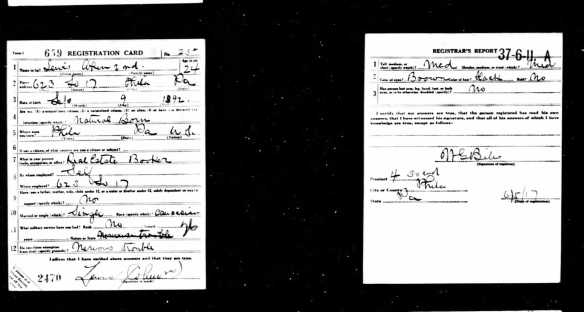 Form 1 659 REGISTRATION CARD No. 235
1 Name in full Lewis Cohen 2nd. Age in yrs. 24
(Given name) (Family name)
2 Home address 623 So 17 Phila Pa
3 Date of birth 9 1892
(Month) (Day) (Year)
4 Natural Born
5 Where were you born? Phila Pa U.S.
6 If not a citizen, of what country are you a citizen or subject?
7 What is your present trade, occupation, or office? Real Estate Broker
8 By whom employed? Self
Where employed? 623 So 17
9 Have you a father, mother, wife, child under 12, or a sister or brother under 12, solely dependent on you for support (specify which)? No
10 Married or single (which)? Single Race (specify which)? Caucasian
11 What military service have you had? Rank No
years Nation or State
12 Do you claim exemption from draft (specify grounds)? Nervous trouble
I affirm that I have verified above answers and that they are true.
2470 Lewis Cohen
REGISTRAR'S REPORT 37-6-11 A
1 Tall, medium, or short (specify which)? Med Slender, medium, or stout (which)? Med
2 Color of eyes? Brown Color of hair? Black Bald? No
3 Has person lost arm, leg, hand, foot, or both eyes, or is he otherwise disabled (specify)? No
I certify that my answers are true, that the person registered has read his own answers, that I have witnessed his signature, and that all of his answers of which I have knowledge are true, except as follows:
(Signature of registrar)
Precinct 4
City or County Phila
State Pa 6/5/17
(Date of registration)